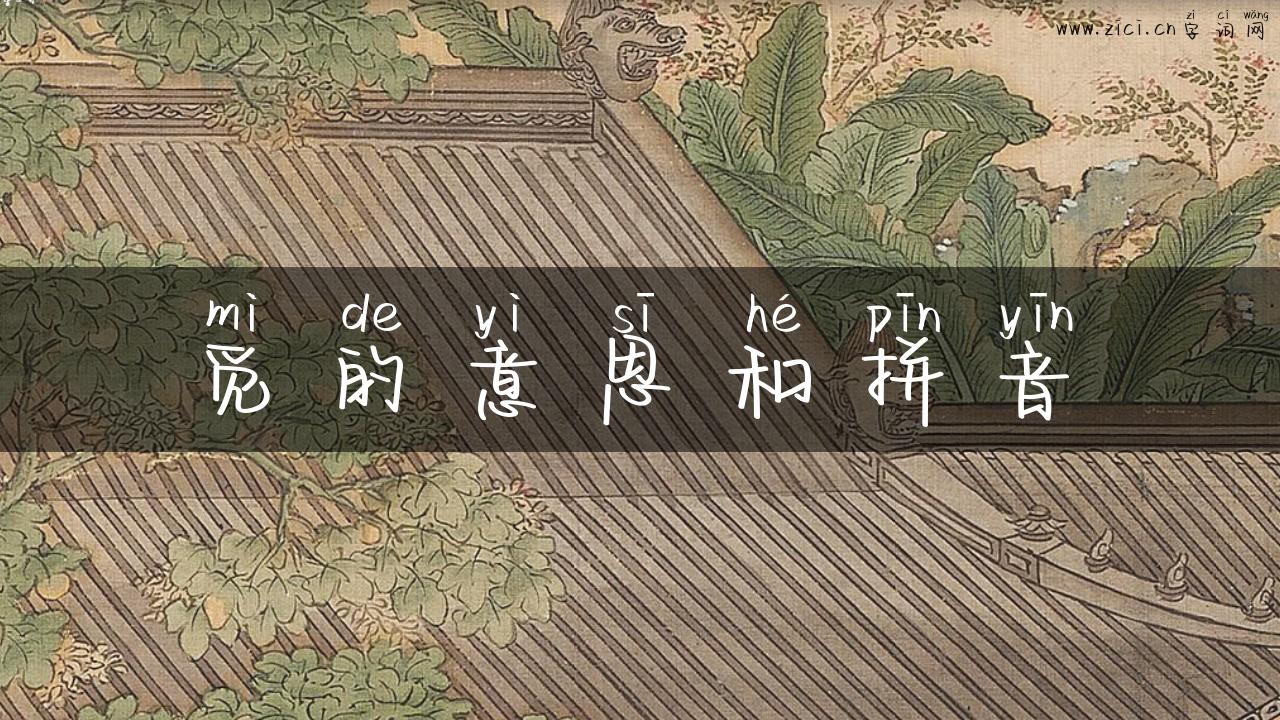 zì cí wǎng
www.zici.cn 字词网
mì de yì sī hé pīn yīn
觅的意思和拼音